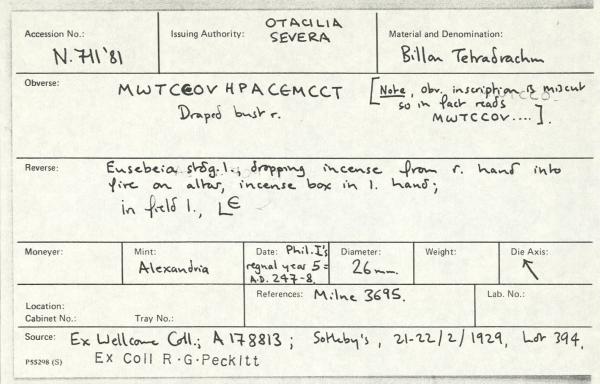 Accession No.:
N.711'81
Issuing Authority:
OTACILIA
SEVERA
Material and Denomination:
Billon Tetradrachm
Obverse:
MWTCЄOV HPACЄMCCT
Draped bust r.
[Note, obv. inscription is miscut
so in fact reads
MWTCCOV....].
Reverse:
Eusebeia stdg. l., dropping incense from r. hand into
fire on altar, incense box in l. hand;
in field l., LЄ
Moneyer:
Mint:
Alexandria
Date: Phil. I's
regnal year 5 =
A.D. 247-8.
Diameter:
26mm.
Weight:
Die Axis:
↖
Location:
Cabinet No.:
Tray No.:
References: Milne 3695.
Lab. No.:
Source: Ex Wellcome Coll.; A 178813; Sotheby's, 21-22/2/1929, Lot 394.
Ex Coll R.G.Peckitt
P55298 (S)